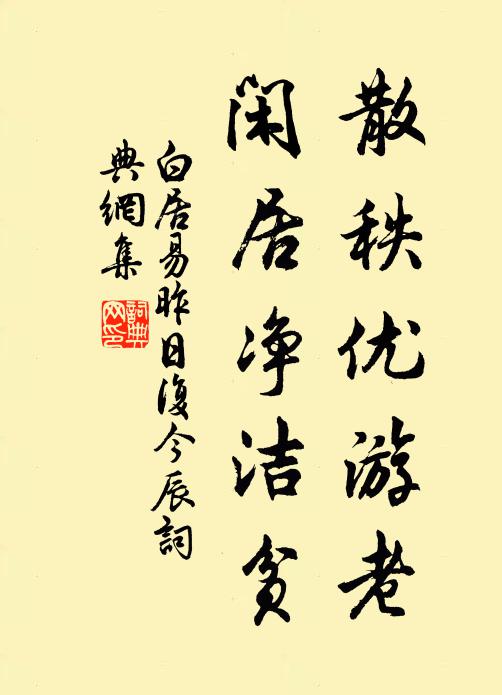 散秩优游老
闲居净洁贫
白居易昨日復今辰詞
典網集
詞典
网印